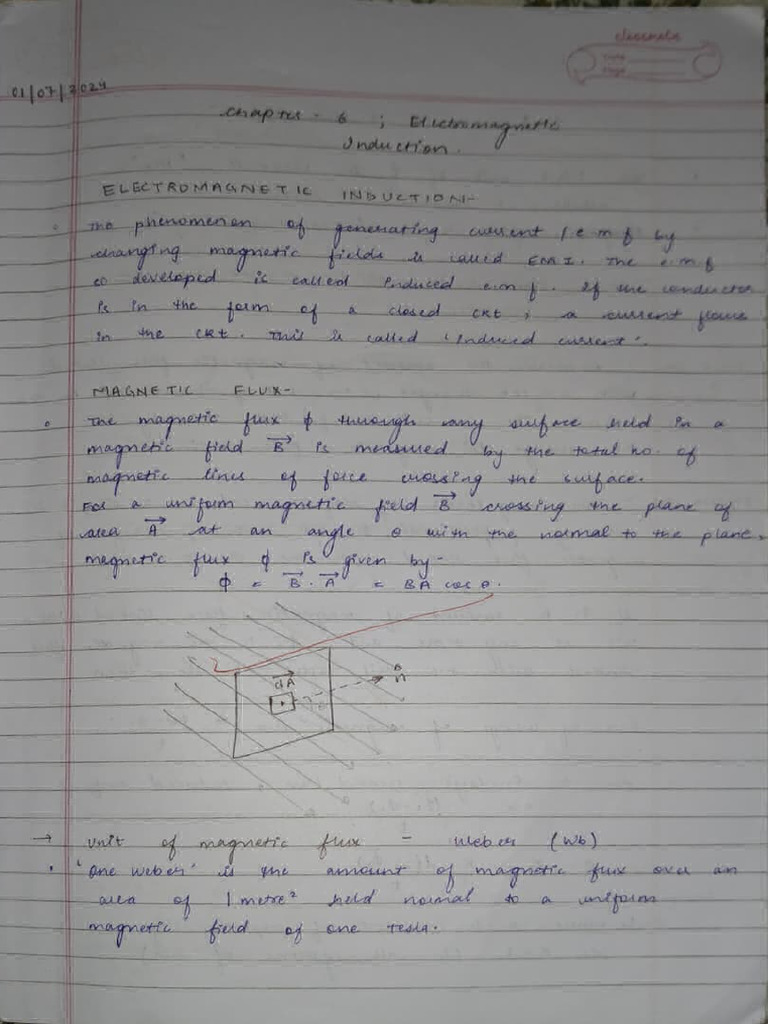 classmate
Date
Page
01/07/2024
Chapter - 6 ; Electromagnetic
Induction.
ELECTROMAGNETIC INDUCTION-
The phenomenon of generating current / e m f by
changing magnetic fields is called EMI. The e.m f
so developed is called Induced e.m f. If the conductor
is in the form of a closed CKt, a current flows
in the CKt. This is called 'Induced current'.
MAGNETIC FLUX-
The magnetic flux ϕ through any surface held in a
magnetic field B⃗ is measured by the total no. of
magnetic lines of force crossing the surface.
For a uniform magnetic field B⃗ crossing the plane of
area A⃗ at an angle θ with the normal to the plane,
magnetic flux ϕ is given by-
ϕ = B⃗ . A⃗ = BA cos θ.
dA⃗
n̂
→ Unit of magnetic flux - Weber (Wb)
'One weber' is the amount of magnetic flux over an
area of 1 metre² held normal to a uniform
magnetic field of one tesla.